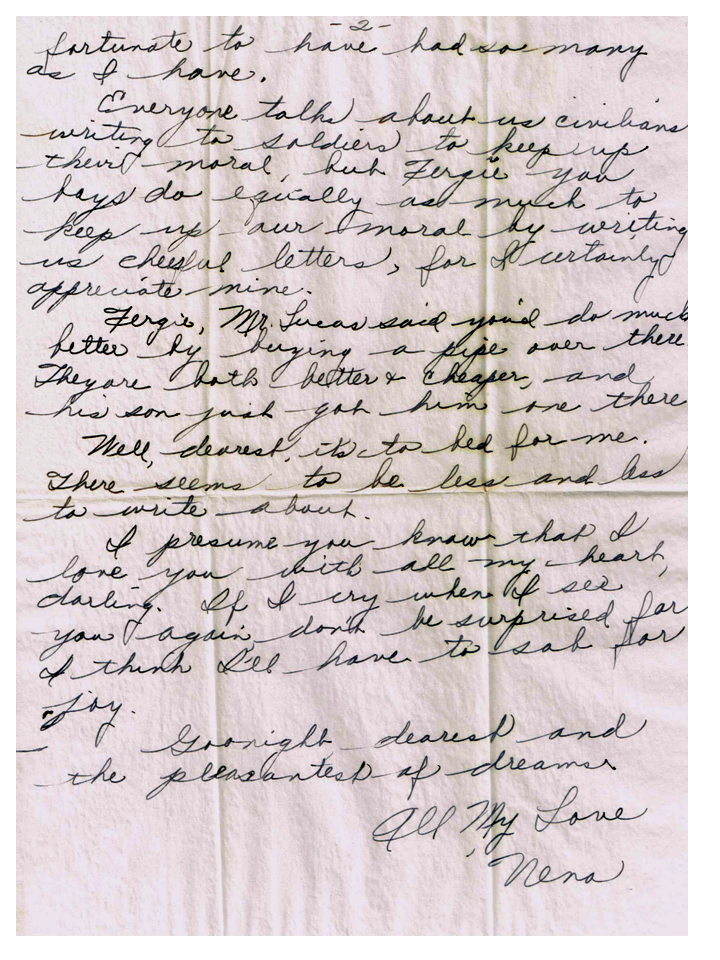 -2-
fortunate to have had so many
as I have.
Everyone talks about us civilians
writing to soldiers to keep up
their moral, but Fergie you
boys do equally as much to
keep up our moral by writing
us cheerful letters, for I certainly
appreciate mine.
Fergie, Mr. Lucas said you'd do much
better by buying a pipe over there.
They are both better & cheaper, and
his son just got him one there
Well, dearest, it's to bed for me.
There seems to be less and less
to write about.
I presume you know that I
love you with all my heart,
darling. If I cry when I see
you again, don't be surprised for
I think I'll have to sob for
joy.
Goonight dearest and
the pleasantest of dreams.
All My Love
Nena